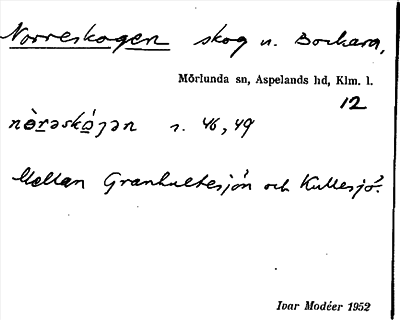 Norreskogen skog n. Bockara,
Mörlunda sn, Aspelands hd, Klm. l.
12
nò̱rəskó̱gən s. 46, 49
Mellan Granhultesjön och Kullesjö.
Ivar Modéer 1952